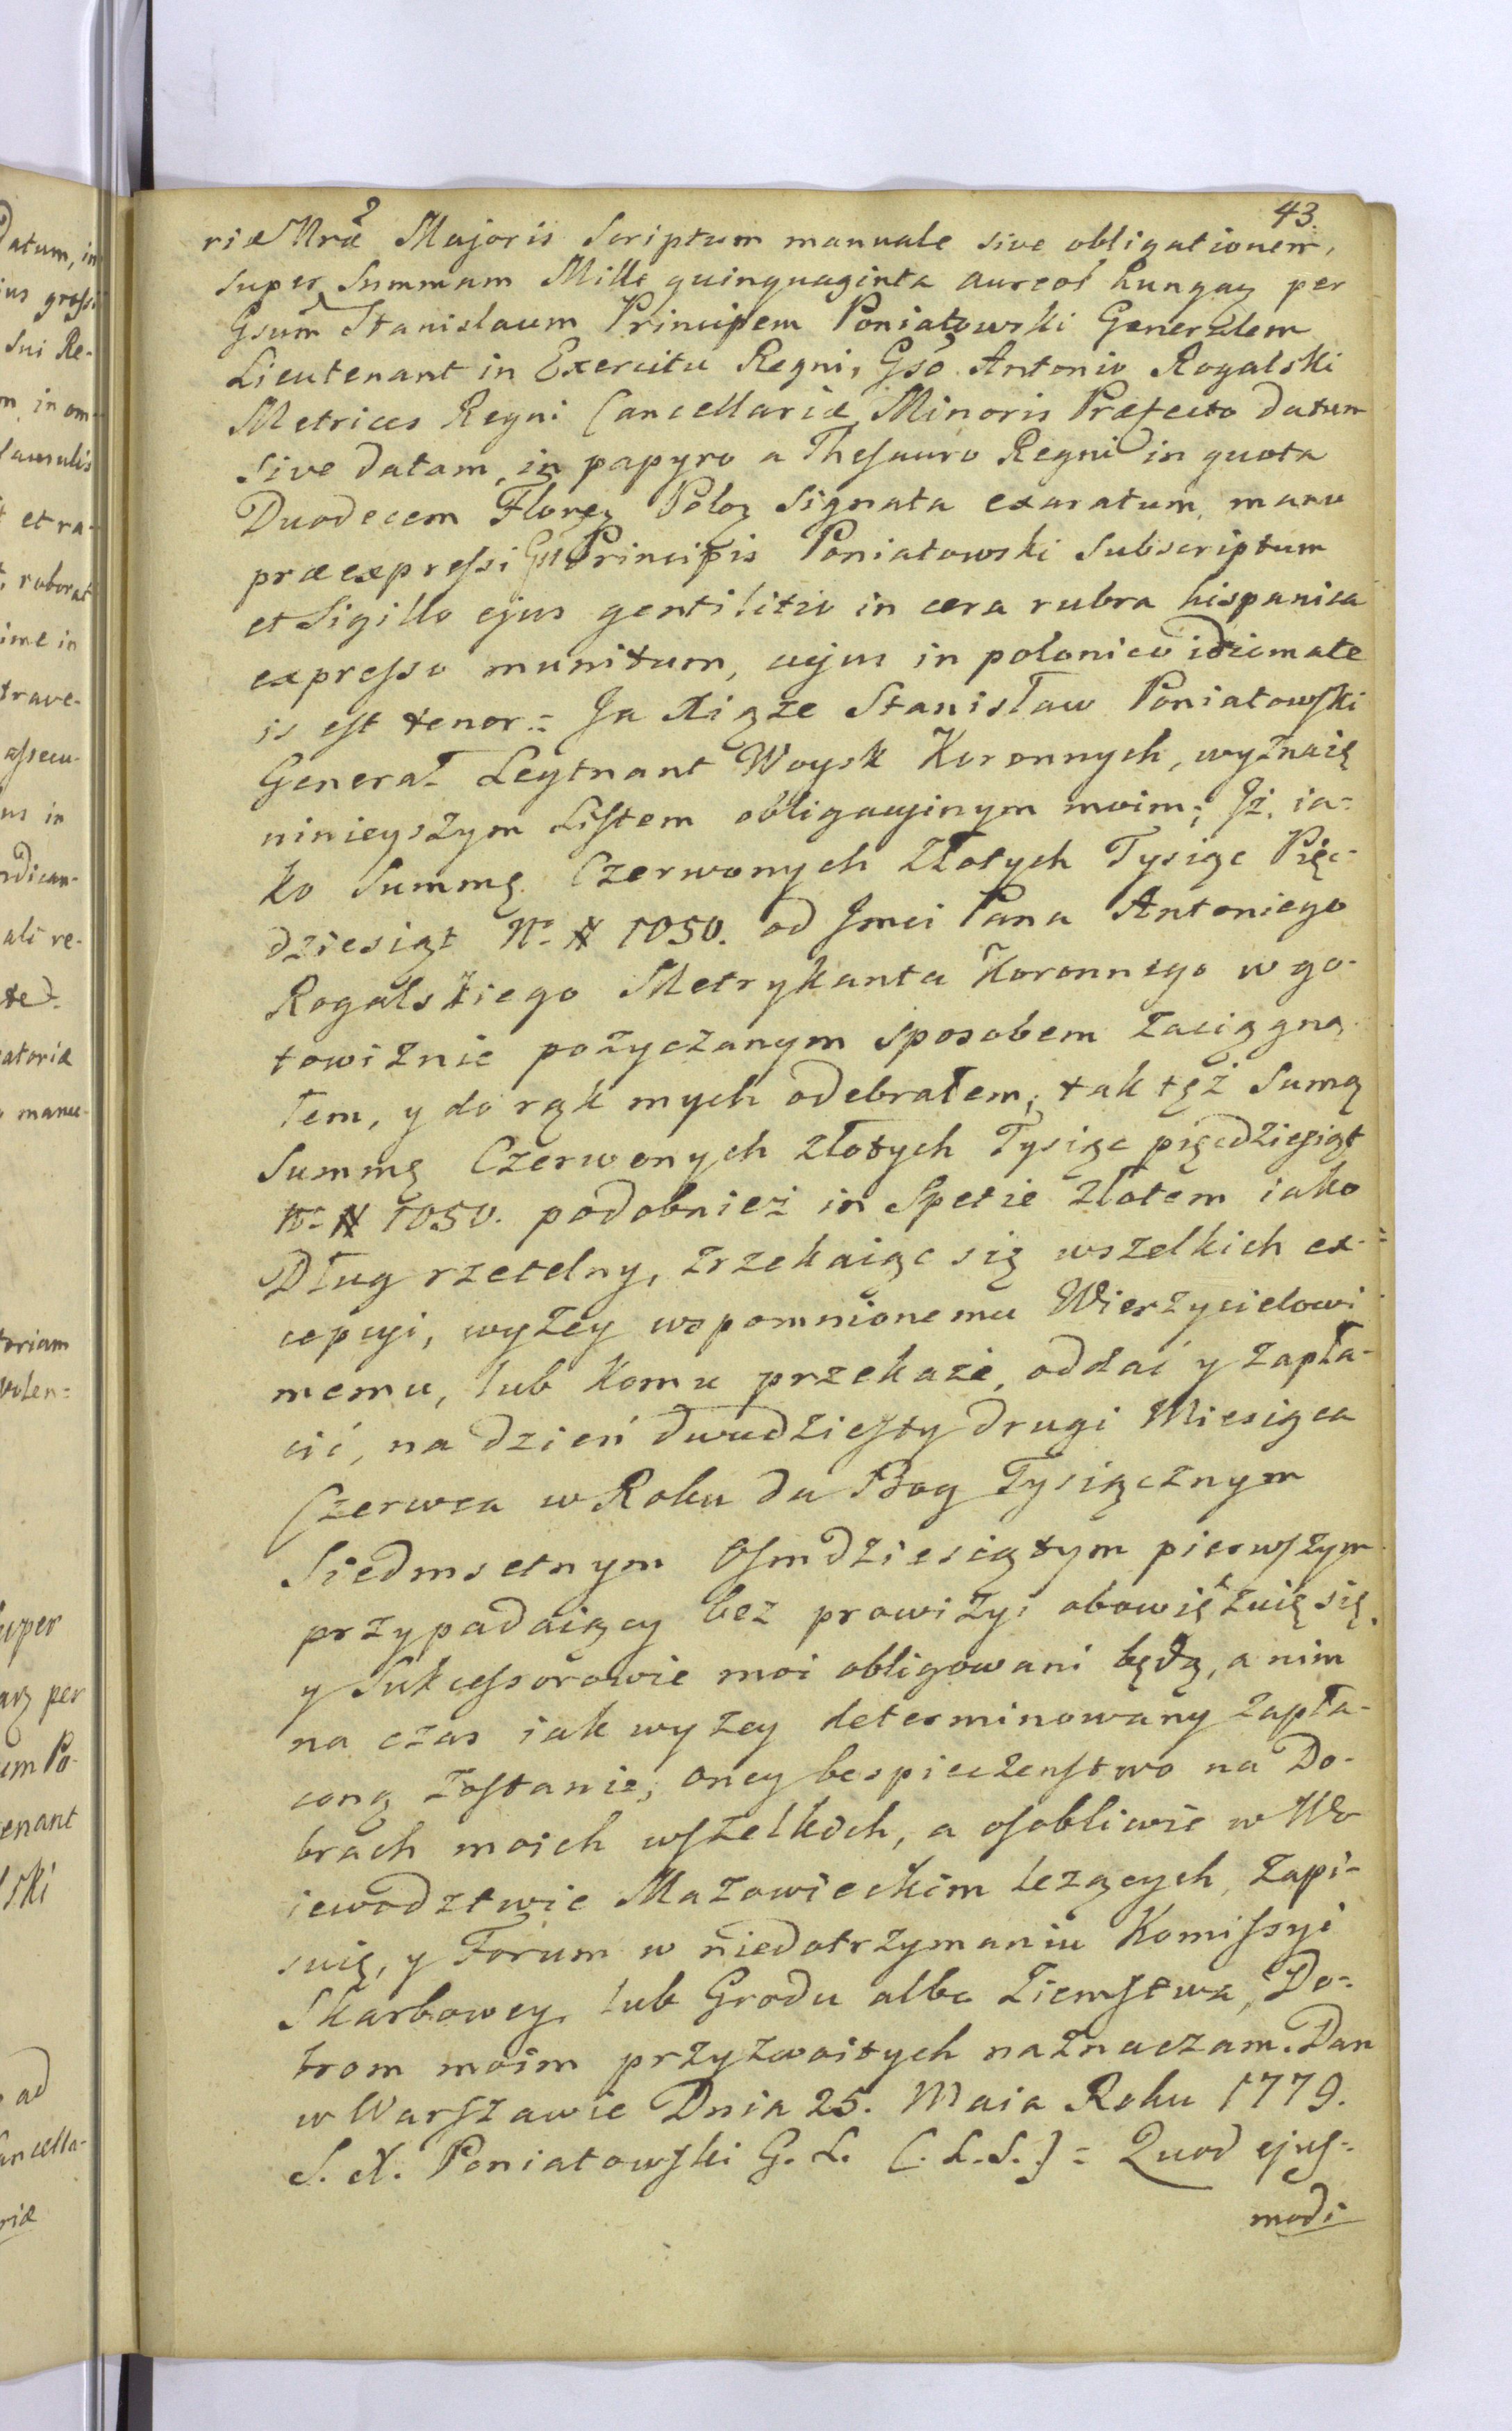 43.
riæ Nræ Majoris Scriptum manuale sive obligationem,
super Summam Mille quinquaginta aureos hungaȝ per
Gsum Stanislaum Principem Poniatowski Generalem
Lieutenant in Exercitu Regni, Gso Antonio Rogalski
Metrices Regni Cancellariæ Minoris Præfecto datum
sive datam, in papyro a Thesauro Regni in quota
Duodecem Floreȝ Poloȝ Signata exaratum, manu
præexpressi Gsi Principis Poniatowski Subscriptum
et Sigillo ejus gentilitio in cera rubra hispanica
expresso munitum, cujus in polonico idiomate
is est tenor = Ja Xiąże Stanisław Poniatowski
Generał Leytnant Woysk Koronnych, wyznaię
ninieyszym Listem obligacyinym moim; Iż, ia=
ko Summę Czerwonych Złotych Tysiąc Pięć-
dziesiąt No # 1050. od Jmci Pana Antoniego
Rogalskiego Metrykanta Koronnego w go-
towiznie pożyczanym sposobem zaciągną-
łem, y do rąk mych odebrałem, tak tęż Samą
Summę Czerwonych złotych Tysiąc pięcdziesiąt
No # 1050. podobnież in Spetie złotem iako
Dług rzetelny, zrzekaiąc się wszelkich ex-
cepcyi, wyżey wspomnionemu Wierzycielowi
memu, lub komu przekaże, oddać y zapła-
cić, na dzień dwudziesty drugi Miesiąca
Czerwca w Roku da Bog Tysiącznym
Siedmsetnym Osmdziesiątym pierwszym
przypadaiący bez prowizyi obowiązuię się
y Sukcessorowie moi obligowani będą, a nim
na czas iak wyżey determinowany zapła-
coną zostanie, oney bespieczenstwo na Do-
brach moich wszelkich, a osobliwie w Wo
iewodztwie Mazowieckim leżących, zapi-
suię, y Forum w niedotrzymaniu Komissyi
Skarbowey, lub Grodu albo Ziemstwa, Do=
brom moim przyzwoitych naznaczam. Dan
w Warszawie Dnia 25. Maia Roku 1779.
S. X. Poniatowski G. L. (.L.S.) = Quod ejus=
modi